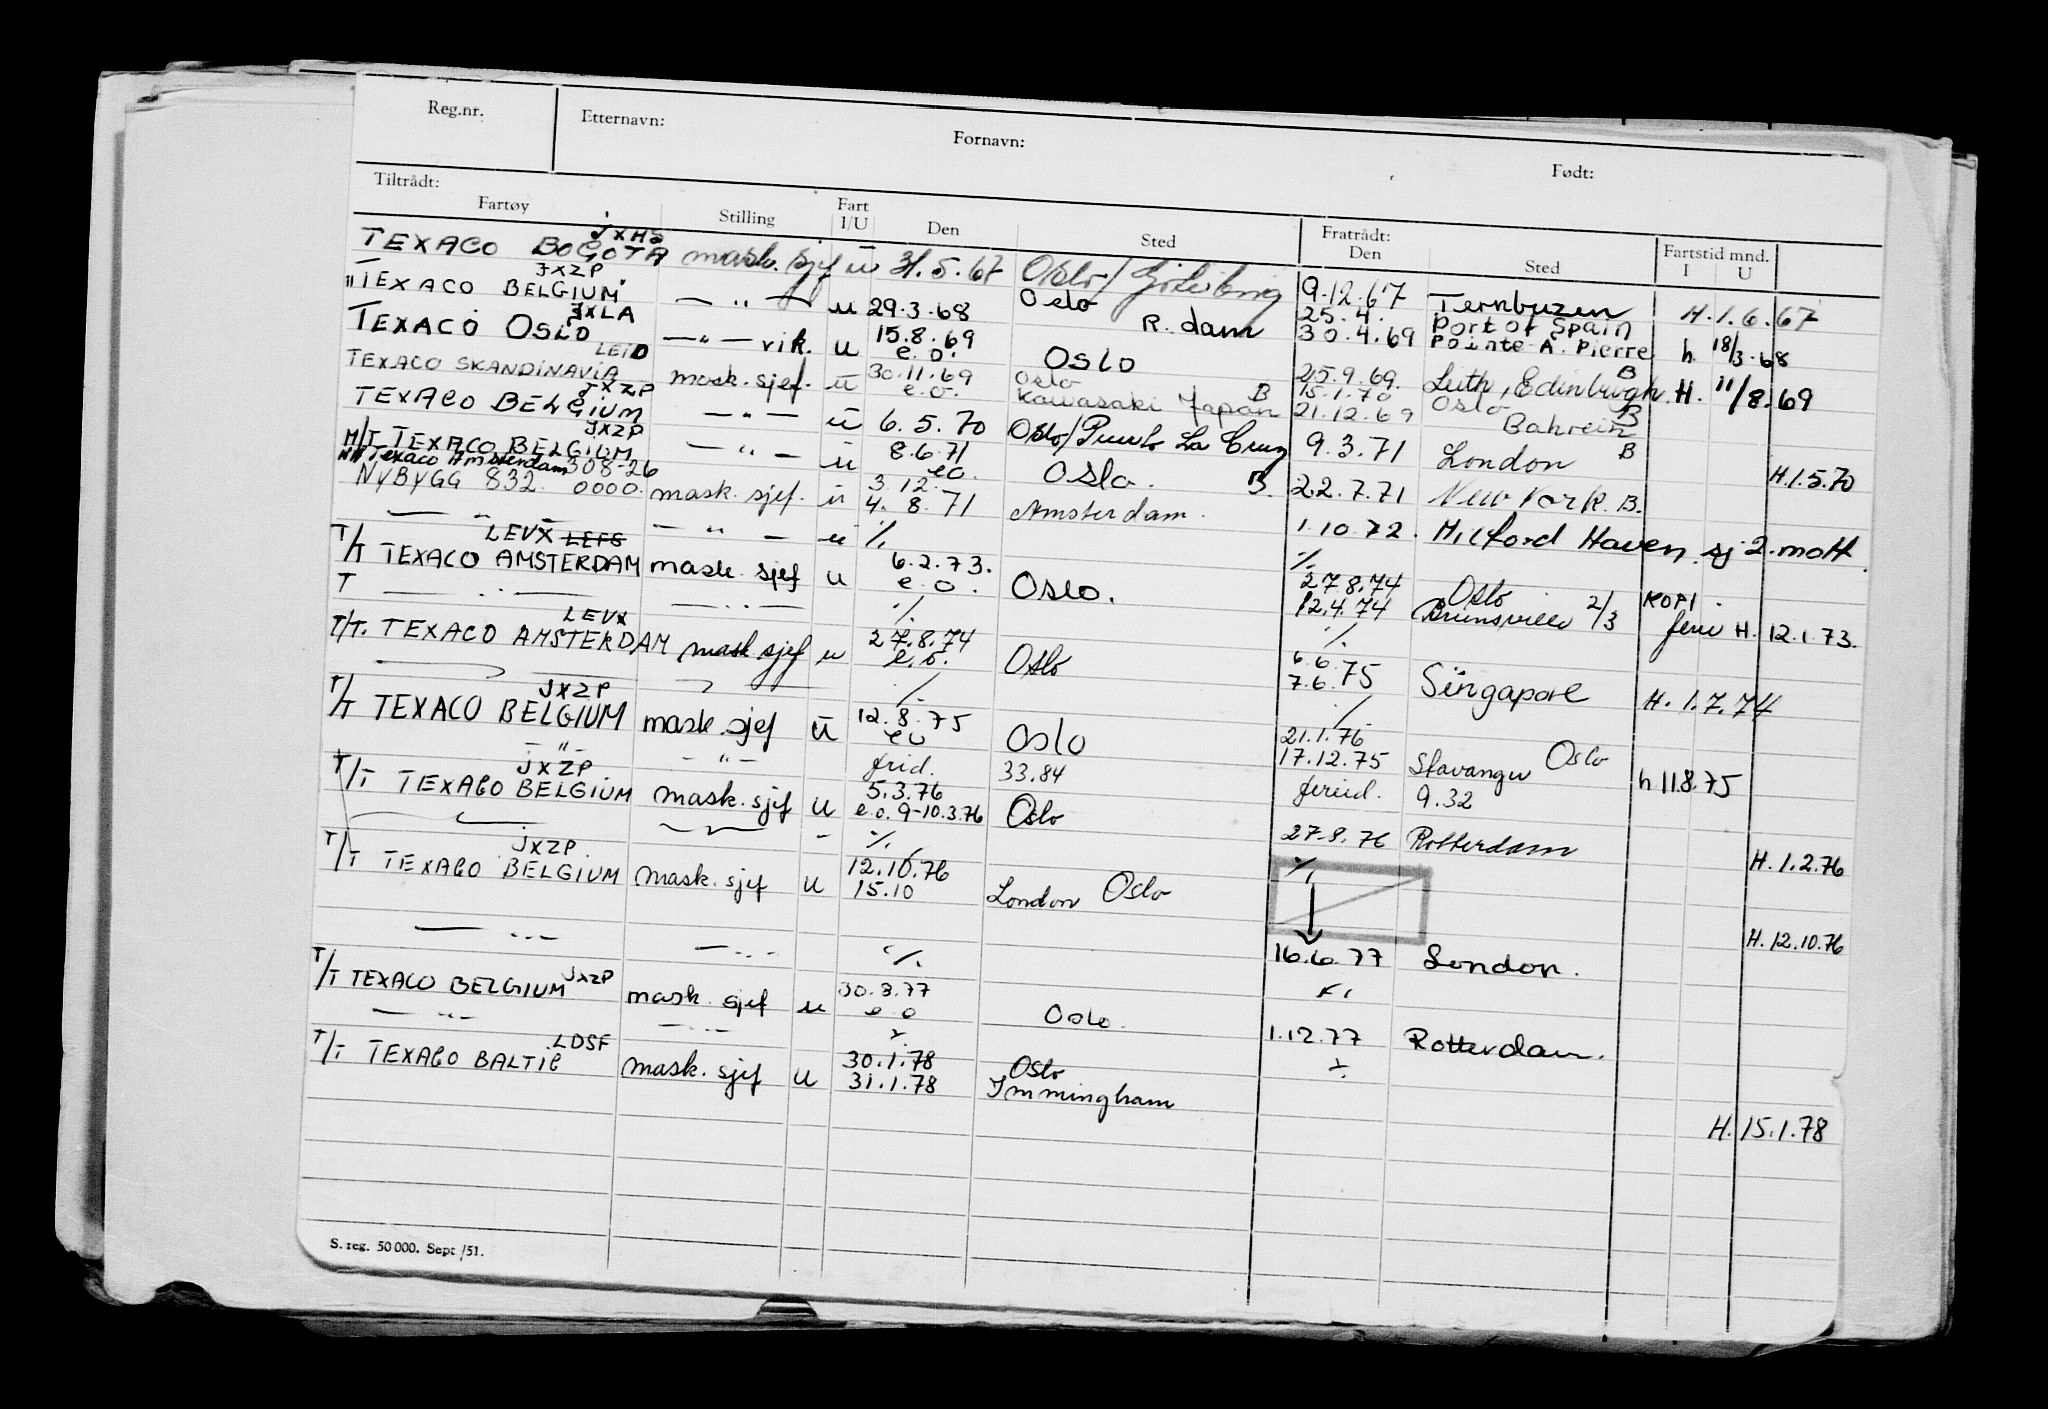 Reg.nr. Etternavn: Fornavn: Født:
Tiltrådt: Fratrådt:
Fartøy Stilling Fart I/U Den Sted Den Sted Fartstid mnd. I U
JXHS
TEXACO BOGOTA mask. sjef u 31.5.67 Oslo/Göteborg 9.12.67 Ternbuzen H.1.6.67
JXZP
TEXACO BELGIUM — " — u 29.3.68 Oslo R.dam 25.4. Port of Spain
30.4.69 Pointe A. Pierre h 18/3.68
JXLA
TEXACO OSLO — " — vik. u 15.8.69 e.o. Oslo 25.9.69. Leith, Edinburgh B H. 11/8.69
LEID
TEXACO SKANDINAVIA mask. sjef. u 30.11.69 Oslo 15.1.70 Oslo
e.o. Kawasaki Japan B 21.12.69 Bahrein B
JXZP
TEXACO BELGIUM — " — u 6.5.70 Oslo/Puerto La Cruz 9.3.71 London B H.1.5.70
JXZP
M/T TEXACO BELGIUM — " — u 8.6.71 eo. Oslo. B. 22.7.71 New York. B.
Texaco Amsterdam 308-26
NYBYGG 832. 0000. mask. sjef. u 3 12. Amsterdam. 1.10.72. Milford Haven. sj 2. mott.
4. 8. 71
— " — — " — u %. %.
LEVX LEFS
T/T TEXACO AMSTERDAM mask. sjef u 6.2.73. e.o. Oslo. 27.8.74 Oslo KOPI.
12.4.74 Brunsville 2/3 ferie H. 12.1.73.
T — .. — — .. — %. %.
LEVX
T/T. TEXACO AMSTERDAM mask sjef u 27.8.74 e.o. Oslo 6.6.75 Singapore H. 1.7.74
7.6.
%. %.
JXZP
T/T TEXACO BELGIUM mask. sjef u 12.8.75 eo Oslo 21.1.76 Oslo
17.12.75 Stavanger h 11.8.75
— " — — " — frid. 33.84 feried. 9.32
JXZP
T/T TEXACO BELGIUM mask. sjef u 5.3.76 e.o. 9-10.3.76 Oslo 27.8.76 Rotterdam H.1.2.76
%. %.
JXZP
T/T TEXACO BELGIUM mask. sjef u 12.10.76 Oslo
15.10 London H. 12.10.76
— .. — — .. — %. 16.6.77 London.
T/T TEXACO BELGIUM JXZP mask. sjef u 30.9.77 e.o Oslo. 1.12.77 Rotterdam.
— " — — .. —
LDSF
T/T TEXACO BALTIC mask. sjef u 30.1.78 Oslo
31.1.78 Immingham H. 15.1.78
S. reg. 50 000. Sept /51.